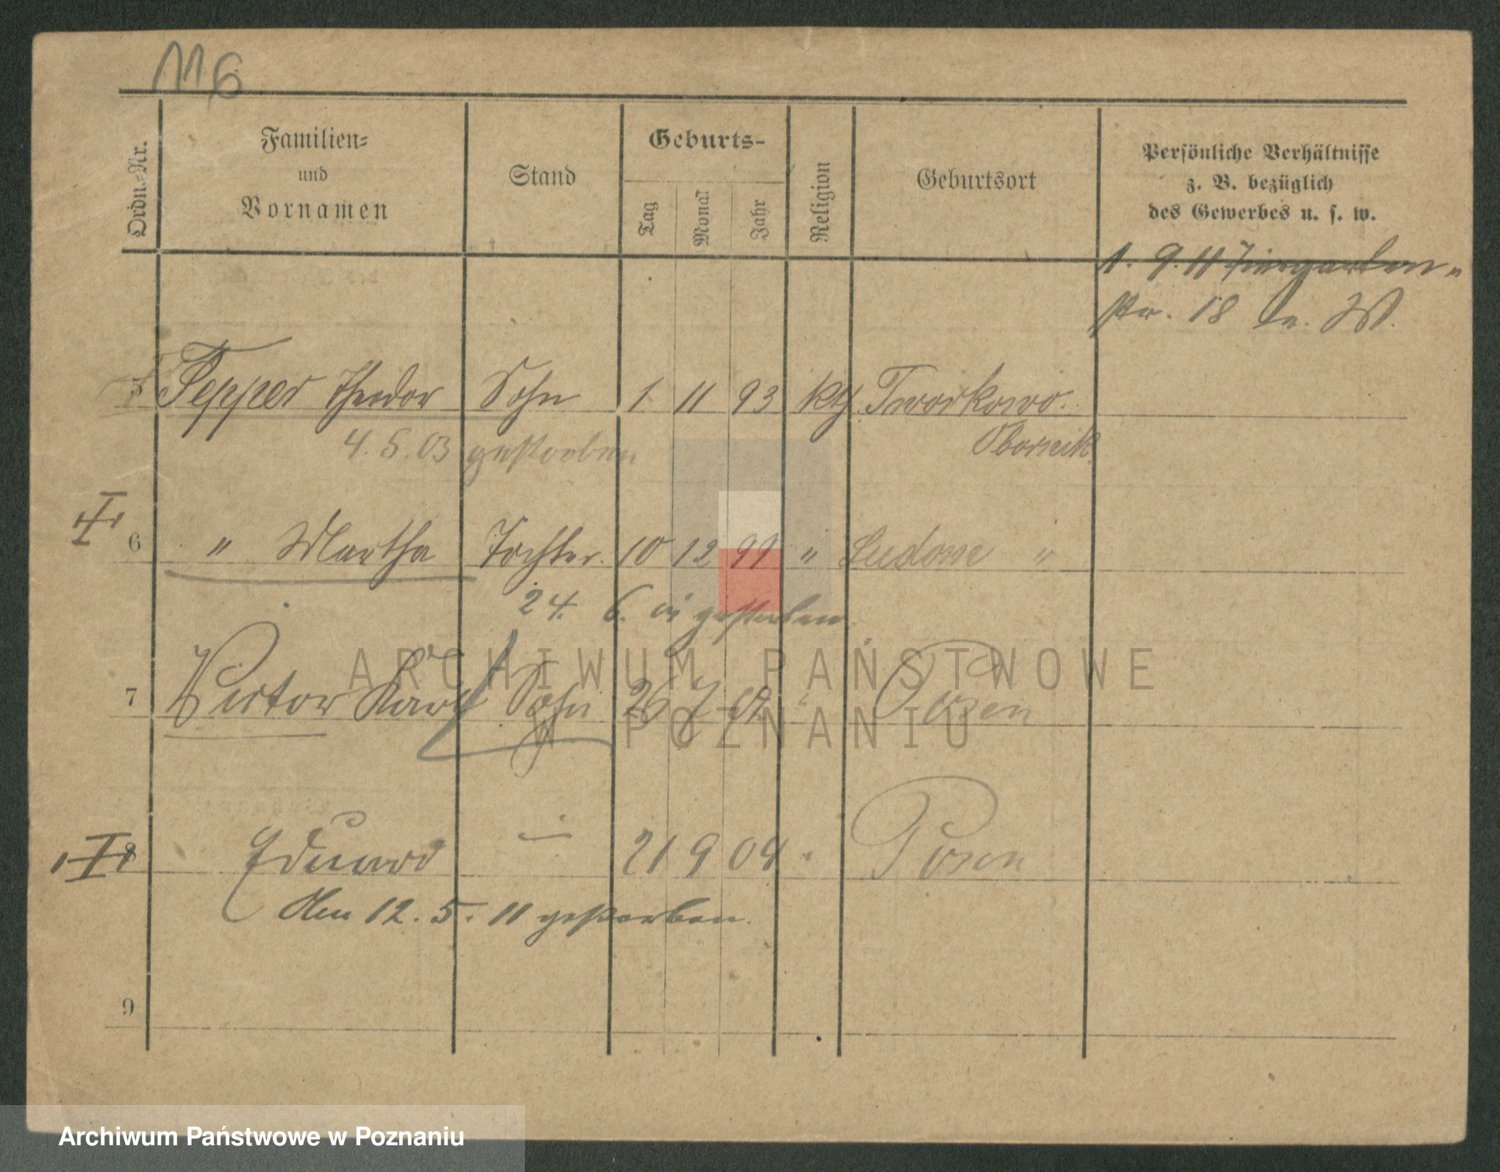 116
Ordn.-Nr. Familien- und Vornamen Stand Geburts- Tag Monat Jahr Religion Geburtsort Persönliche Verhältnisse z. B. bezüglich des Gewerbes u. s. w.
1. 9. 11 Tiergarten-
str. 18 W.
5 Tepper Theodor Sohn 1 11 93 kth Tworkowo.
4. 5. 03 gestorben Obornik
6 " Martha Tochter. 10 12 99 " Ludom "
24. 6. gestorben
7 Victor Karl Sohn 26 7 " Posen
8 Eduard — 21 9 04 " Posen
den 12. 5. 11 gestorben.
9
ARCHIWUM PAŃSTWOWE
W POZNANIU
Archiwum Państwowe w Poznaniu